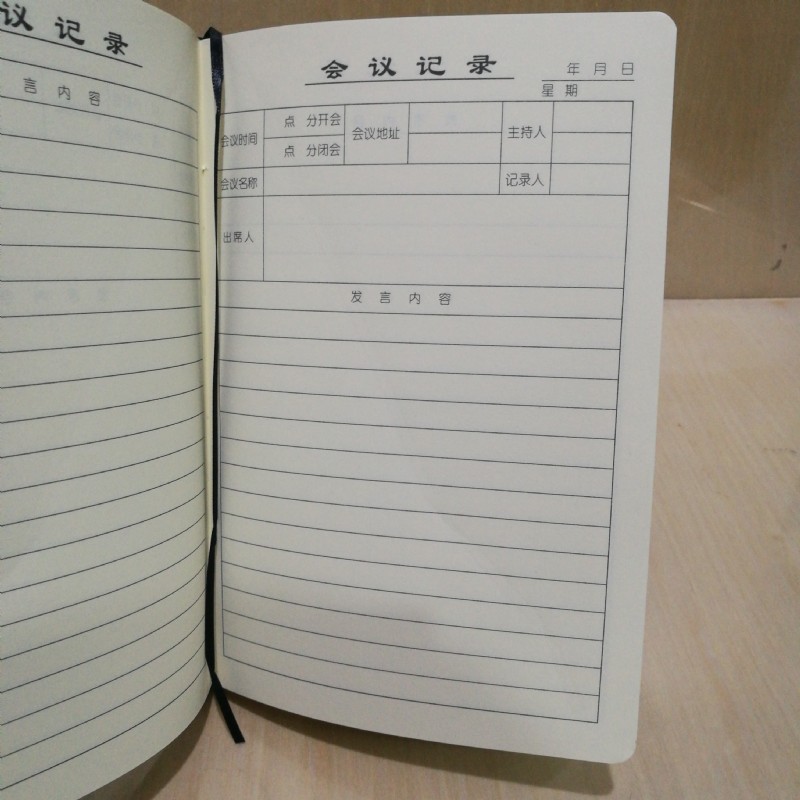 议记录
言内容
会议记录
年月日
星期
会议时间 点 分开会 会议地址 主持人
点 分闭会
会议名称 记录人
出席人
发言内容